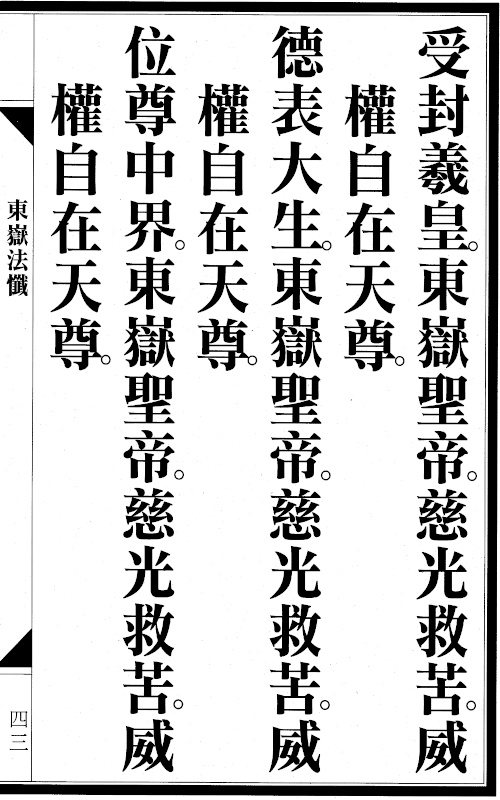 受封羲皇。東嶽聖帝。慈光救苦。威
權自在天尊。
德表大生。東嶽聖帝。慈光救苦。威
權自在天尊。
位尊中界。東嶽聖帝。慈光救苦。威
權自在天尊。
東嶽法懺
四三